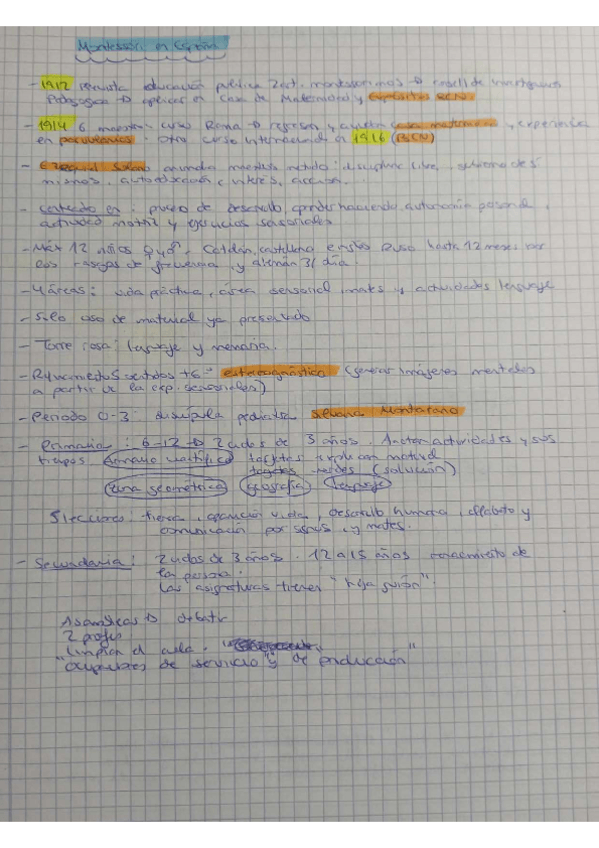 Montessori en España
- 1912 revista educación pública 2 art. montessorianos → consell de investigación
Pedagógica → aplicar en Casa de Maternidad y expósitos BCN
- 1914 6 maestras curso Roma → regresan y casa maternidad, y experiencia
en parvularios. Otro curso internacional en 1916 (BCN)
- Ezequiel Solana método: disciplina libre, gobierno de sí
mismos, autoeducación, interés, acción...
- Centrado en: proceso de desarrollo, aprender haciendo, autonomía personal,
actividad motriz y ejercicios sensoriales
- Máx 12 niños ♀ y ♂. Catalán, castellano hasta 12 meses por
los rasgos de frecuencia y alemán 3/día.
- 4 áreas: vida práctica, área sensorial, mates y actividades lenguaje
- Sólo uso de material ya presentado
- Torre rosa: lenguaje y memoria.
- 5 sentidos +6º estereognóstico (generar imágenes mentales
a partir de la exp. sensoriales)
- Periodo 0-3: discípula pediatra Silvana Montanaro
- Primaria: 6-12 → 2 ciclos de 3 años. Anotan actividades y sus
tiempos armario científico tarjetas explican material
tarjetas verdes (solución)
zona geométrica geografía lenguaje
5 lecciones: tierra, aparición vida, desarrollo humano, alfabeto y
comunicación por signos, y mates.
- Secundaria: 2 ciclos de 3 años. 12 a 15 años conocimiento de
la persona.
Las asignaturas tienen "hoja guión".
Asambleas → debatir
2 profes
limpian el aula.
"ocupaciones de servicio" y de producción"